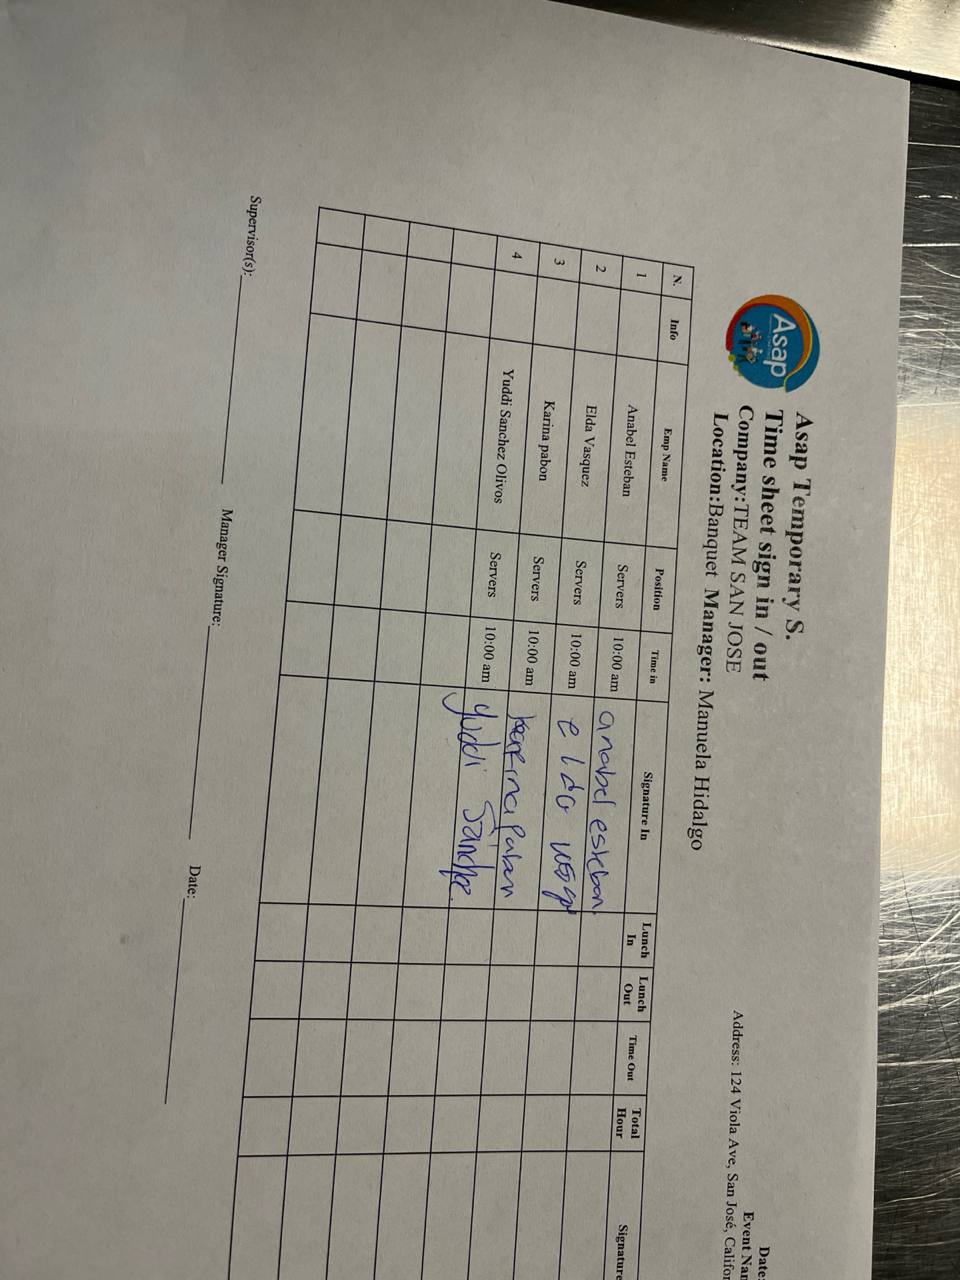 Asap
Asap Temporary S.
Time sheet sign in / out
Company:TEAM SAN JOSE
Location:Banquet Manager: Manuela Hidalgo
Date:
Event Nam
Address: 124 Viola Ave, San José, Califor
N. Info Emp Name Position Time in Signature In Lunch In Lunch Out Time Out Total Hour Signature
1 Anabel Esteban Servers 10:00 am anabel esteban
2 Elda Vasquez Servers 10:00 am elda
3 Karina pabon Servers 10:00 am karina pabon
4 Yuddi Sanchez Olivos Servers 10:00 am Yuddi Sanchez
Supervisor(s): Manager Signature: Date: